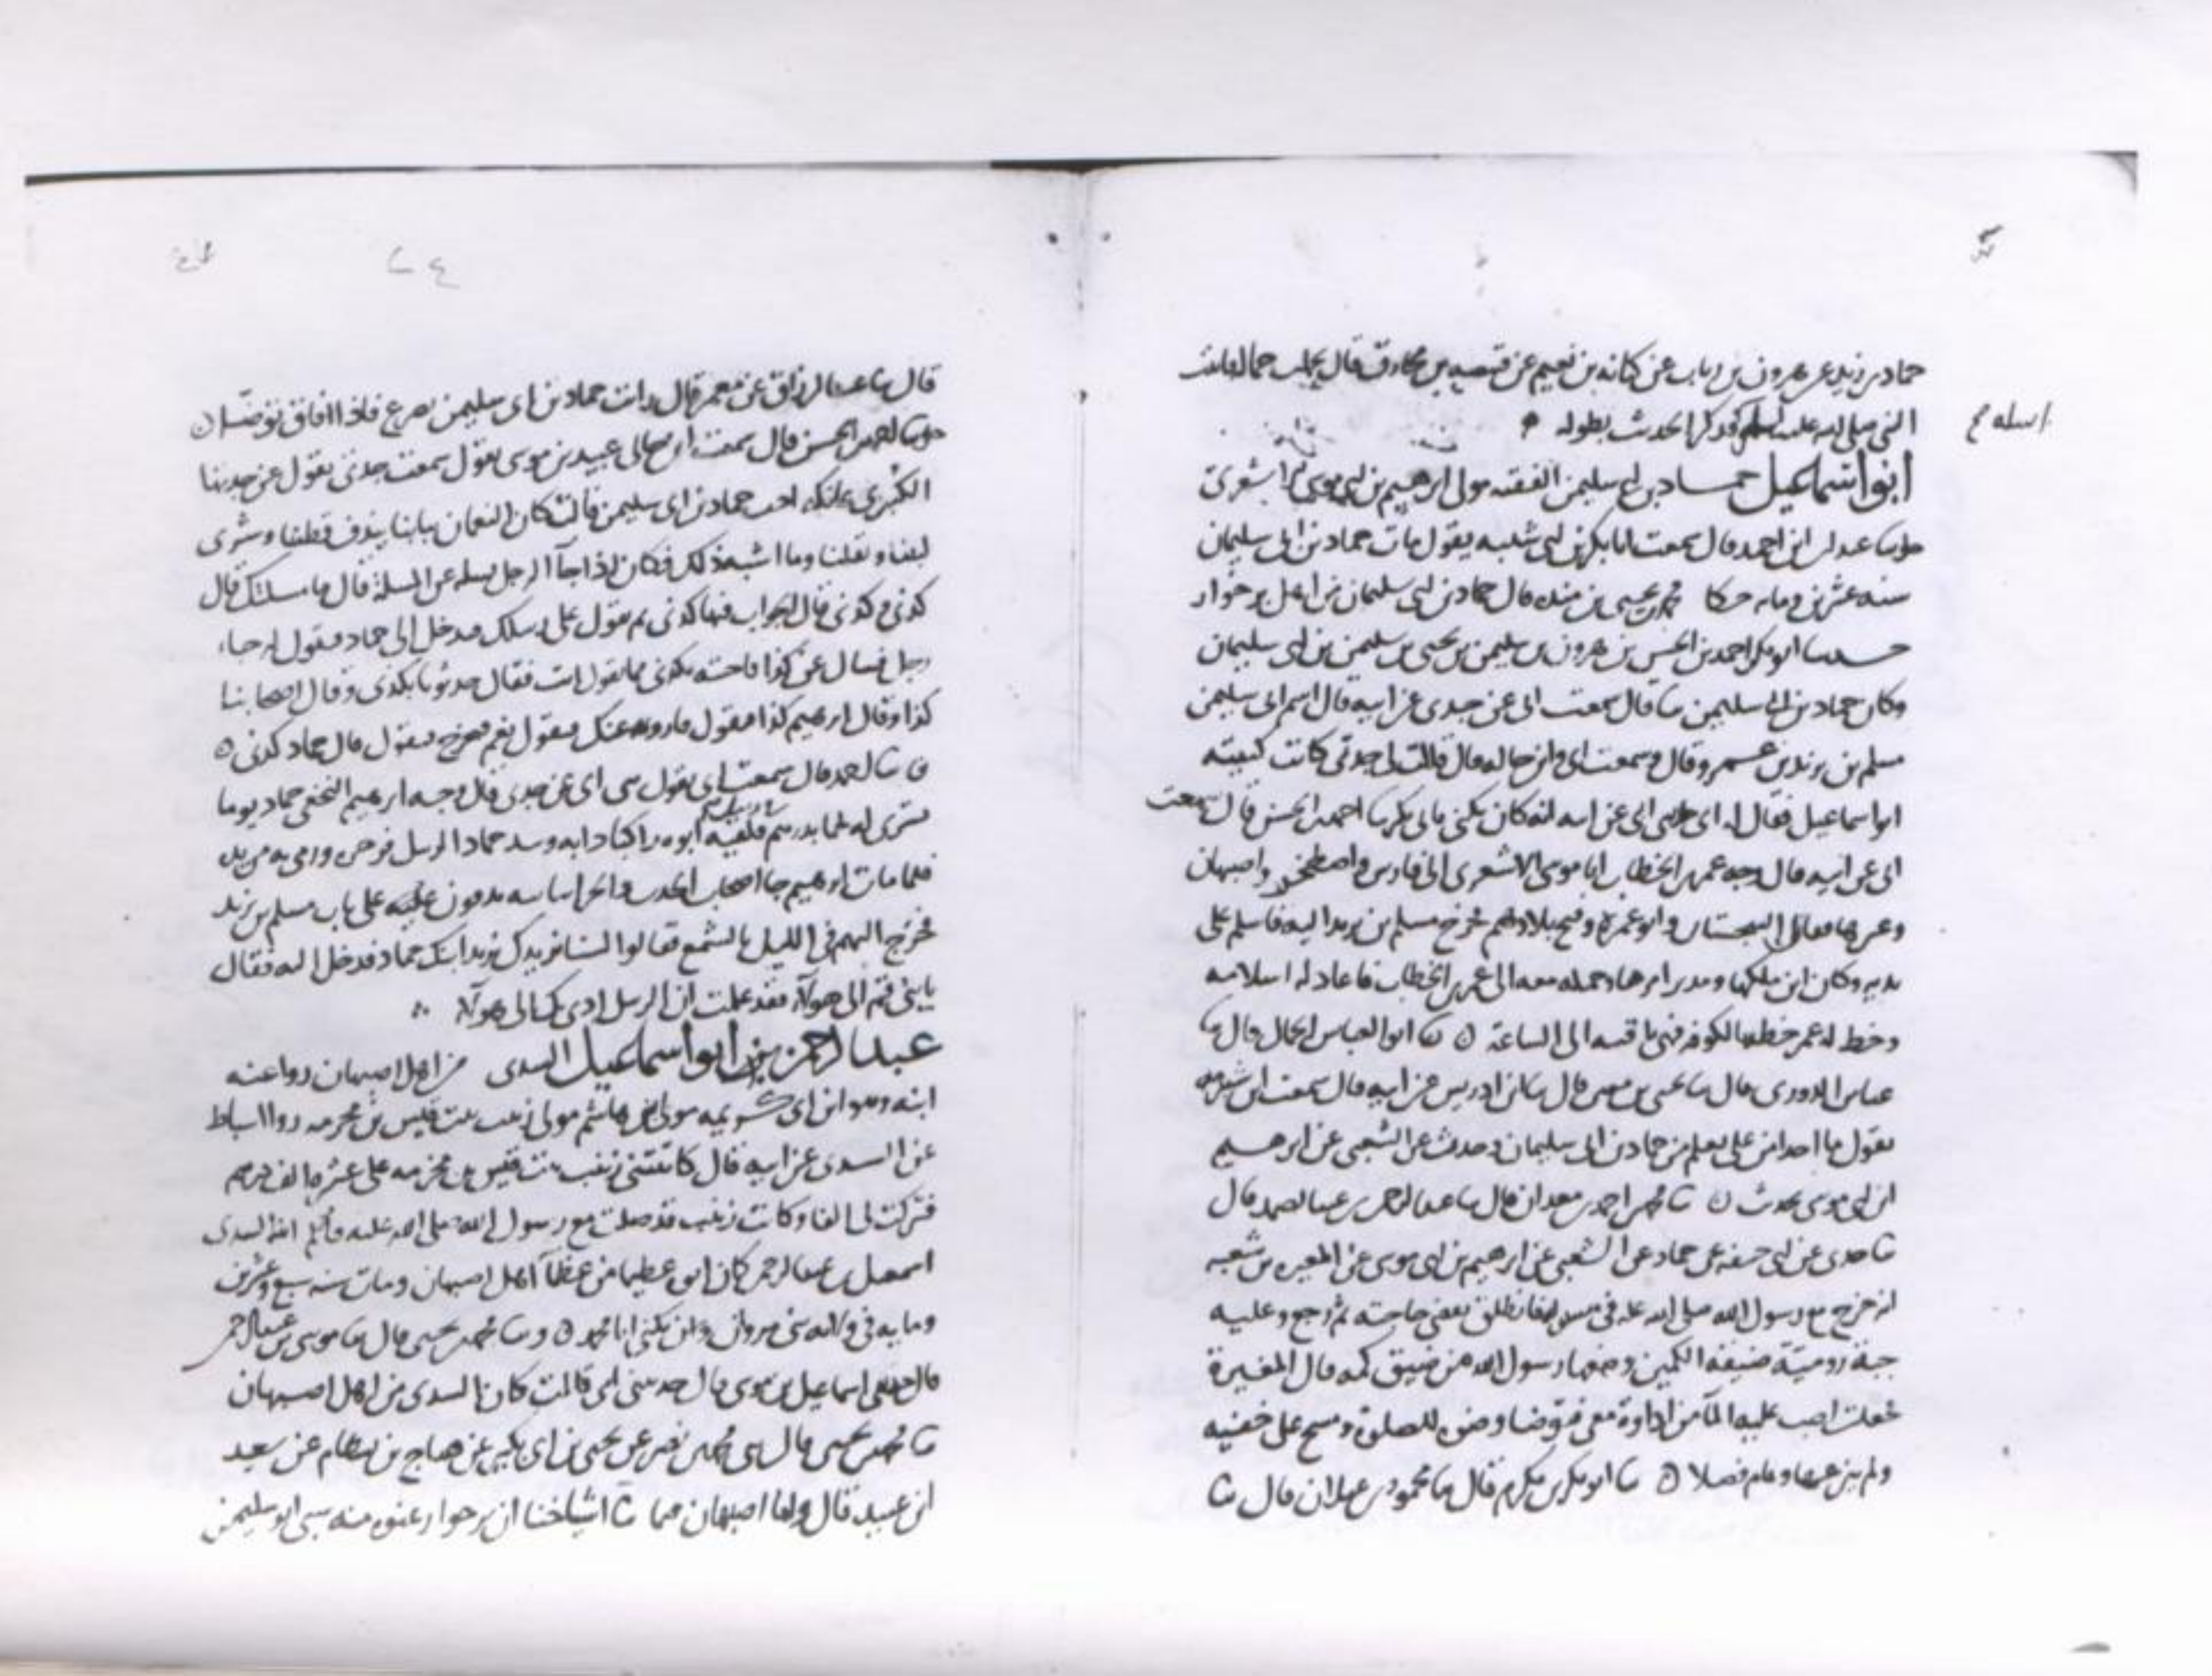 حماد بن زيد عن هرون بن رياب عن كنانه بن نعيم عن قبيصه بن مخارق قال تحملت حماله فاتيت
النبي صلى الله عليه وسلم فذكر الحديث بطوله
اساله
ابو اسماعيل حماد بن ابي سليمن الفقيه مولى ابرهيم بن ابي موسى الاشعري
حدثنا عبد الله ابن احمد قال سمعت ابا بكر بن ابي شيبه يقول مات حماد بن ابي سليمان
سنه عشرين ومايه حكا محمد بن يحيى بن منده قال حماد بن ابي سليمان من اهل برخوار
حدثنا ابو بكر احمد بن الحسن بن هرون بن سليمن بن يحيى بن سليمن بن ابي سليمان
وكان حماد بن ابي سليمن قال سمعت ابي عن جدي عن ابيه قال اسم ابي سليمن
مسلم بن يزيد بن عمرو قال وسمعت ابي وابن خاله قال قالت لي جدتي كانت كنيته
ابو اسماعيل فقال له ابي حدثني ابي عن ابيه انه كان يكنى بابي بكر ثنا احمد بن الحسن قال سمعت
ابي عن ابيه قال وجه عمر بن الخطاب ابا موسى الاشعري الى فارس واصطخر واصبهان
بلادهم خرج مسلم بن يزيد اليه فاسلم على
يديه وكان ابن ملكها ومدبر امرها وحمله معه الى عمر بن الخطاب فاعاد له اسلامه
وخط له عمر خطه بالكوفه فهي باقيه الى الساعة ٥ ثنا ابو العباس الجمال قال ثنا
عباس الدوري قال ثنا يحيى بن معين قال ثنا ابن ادريس عن ابيه قال سمعت ابن شبرمه
يقول ما احد امن علي بعلم من حماد بن ابي سليمان وحدث عن الشعبي عن ابرهيم
ابن ابي موسى بحديث ٥ ثنا محمد بن احمد بن معدان قال ثنا عبد الرحمن بن عبد الصمد قال
ثنا جدي عن ابي حنيفه عن حماد عن الشعبي عن ابرهيم بن ابي موسى عن المغيره بن شعبه
انه خرج مع رسول الله صلى الله عليه في سفر فانطلق يقضي حاجته ثم رجع وعليه
جبة رومية ضيقة الكمين وضعها رسول الله من ضيق كمه قال المغيرة
فجعلت اصب عليه الما من اداوة معي فتوضا وضوه للصلوة ومسح على خفيه
ولم ينزعهما وقام فصلا ٥ ثنا ابو بكر بن مكرم قال ثنا محمود بن غيلان قال ثنا
٢٤
قال ثنا عبد الرزاق عن معمر قال رايت حماد بن ابي سليمن يصرع فاذا افاق توضا ٥
حدثنا احمد بن الحسن قال سمعت ابن خالي عبيد بن موسى يقول سمعت جدتي تقول عن جدتها
الكبرى عاتكه اخت حماد بن ابي سليمن قالت كان النعمان ببابنا يندف قطننا وشرى
لبننا وبقلنا وما اشبه ذلك فكان اذا جا الرجل يسله عن المسلة قال ما مسلتك قال
كذى وكذى قال الجواب فيها كذى ثم يقول على رسلك فيدخل الى حماد فيقول له جا
رجل فسال عن كذا فاجبته بكذى فما تقول انت فقال حدثونا بكذى وقال اصحابنا
كذا وقال ابرهيم كذا فيقول فاروى عنك فيقول نعم فيخرج فيقول قال حماد كذى ٥
ثنا احمد قال سمعت ابي يقول حدثني ابي عن جدي قال وجه ابرهيم النخعي حماد يوما
يشتري له لحما بدرهم فلقيه ابوه راكبا دابه وبيد حماد الزبيل فزجره ورمى به من يده
فلما مات ابرهيم جا اصحاب الحديث والخراسانيه يدقون عليه على باب مسلم بن يزيد
فخرج اليهم في الليل بالشمع فقالوا لسنا نريدك نريد ابنك حماد فدخل اليه فقال
يا بني قم الى هولا فقد علمت ان الزبيل ادى بك الى هولا
عبد الرحمن بن ابو اسماعيل السدي من اهل اصبهان روا عنه
ابنه وهو ابن ابي كريمه مولى بني هاشم مولى زينب بنت قيس بن مخرمه روا اسباط
عن السدي عن ابيه قال كاتبتني زينب بنت قيس بن مخرمه على عشره الف درهم
فتركت لي الفا وكانت زينب قد صلت مع رسول الله صلى الله عليه وسلم ابنه السدي
اسمعيل بن عبد الرحمن كان ابوه عظيما من عظما اهل اصبهان ومات سنه سبع وعشرين
ومايه في ولايه بني مروان وكان يكنى ابا محمد ٥ وثنا محمد بن يحيى قال ثنا موسى بن عبد الرحمن
قال حدثني اسماعيل بن موسى قال حدثتني امي قالت كان السدي من اهل اصبهان
ثنا محمد بن يحيى قال حدثني محمد بن نصر عن يحيى بن ابي بكير عن هياج بن بسطام عن سعيد
ابن عبيد قال واما اصبهان فما ثنا اشياخنا ان برخوار عنوه منه سبي ابو سليمن